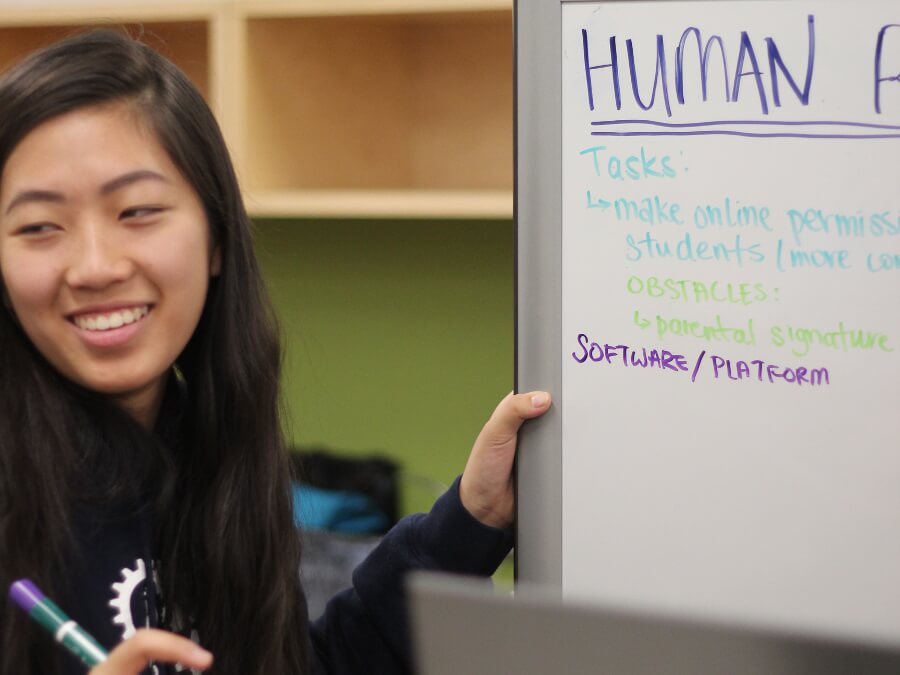 HUMAN
Tasks:
↳ make online permissi
students / more con
OBSTACLES:
↳ parental signature
SOFTWARE / PLATFORM